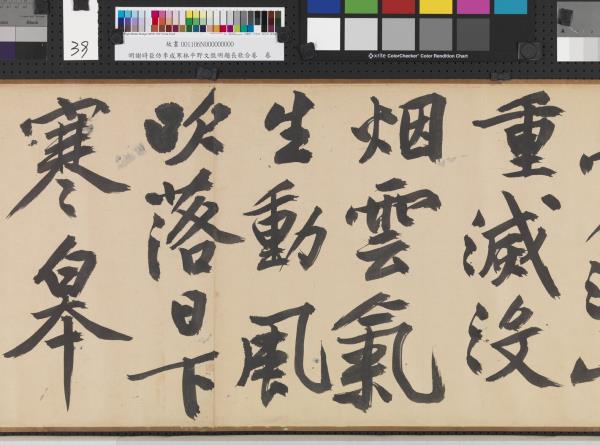 39
故畫 001106N000000000
明謝時臣仿李成寒林平野文徵明題長歌合卷 卷
x-rite ColorChecker Color Rendition Chart
重滅没
烟雲氣
生動風
吹落日下
寒皋